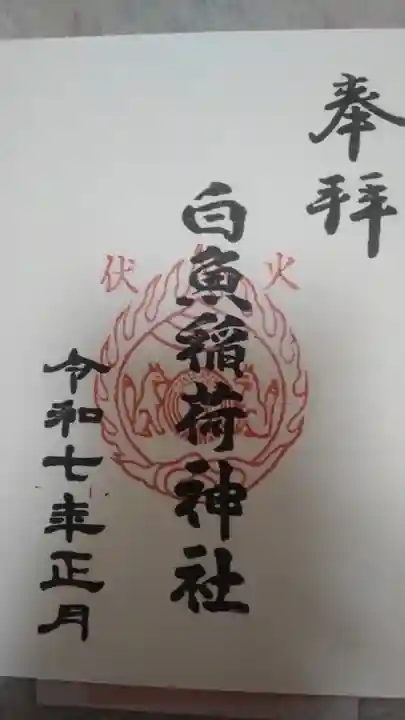 奉拝
火伏
白魚稲荷神社
令和七年正月